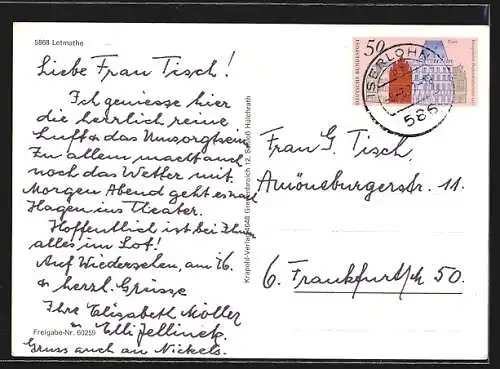 5868 Letmathe
Liebe Frau Tisch!
Ich geniesse hier
die herrlich reine
Luft & das Umsorgtsein
Zu allem macht auch
noch das Wetter mit.
Morgen Abend geht es nach
Hagen ins Theater.
Hoffentlich ist bei Ihnen
alles im Lot!
Auf Wiedersehen, am 26.
& herzl. Grüsse
Ihre Elisabeth Möller
u. Elli Jellinek.
Gruss auch an Nickels.
Freigabe-Nr. 60259
Krapohl-Verlag 4048 Grevenbroich 12, Schloß Hülchrath
50
DEUTSCHE BUNDESPOST
ISERLOHN
586
Frau G. Tisch
Amöneburgerstr. 11
6. Frankfurt/M 50.